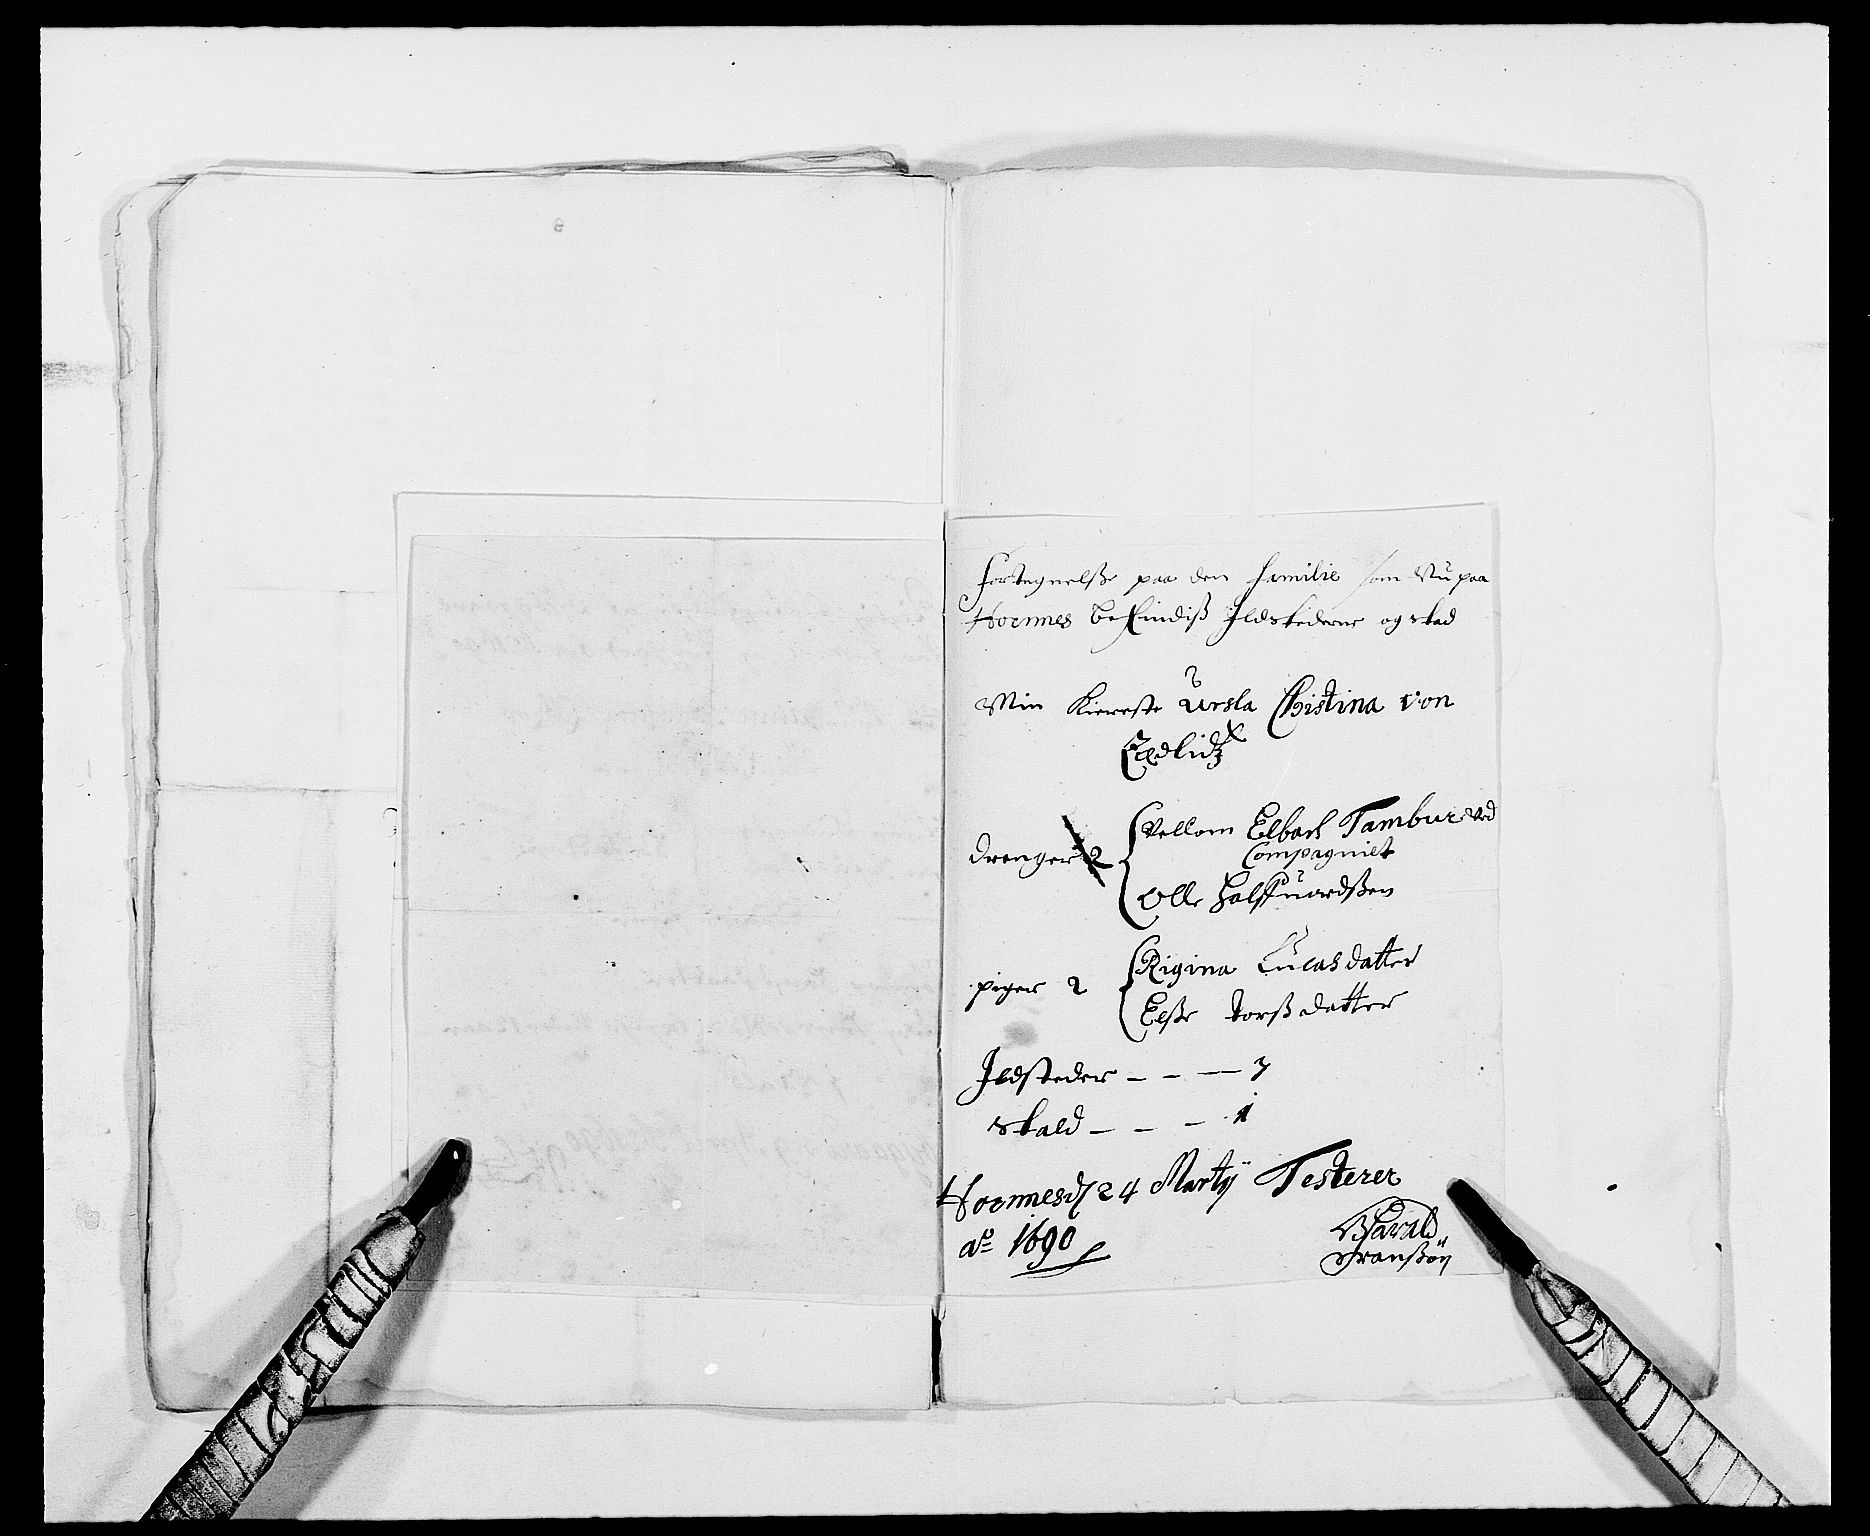 Fortegnelsße paa den familie som Nu paa
Hornnes befindiß Jldstederne og skad
Min Kiereste Ursla Christina von
Zedlidz
drenger 2 Vellom Elbach Tambur ved
Compagniet
Olle Halffuordßen
piger 2 Rigina Lucas datter
Elße torß datter
Jldsteder - - - 7
skald - - - 1
Hornnes d 24 Martij Testerer
ao 1690 Harald